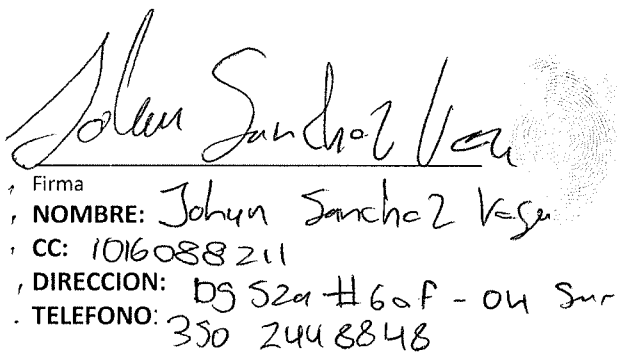 Johan Sanchez Vega
Firma
NOMBRE: Johan Sanchez Vega
CC: 1016088211
DIRECCION: DG 52a #60f - 04 Sur
TELEFONO: 350 2448848